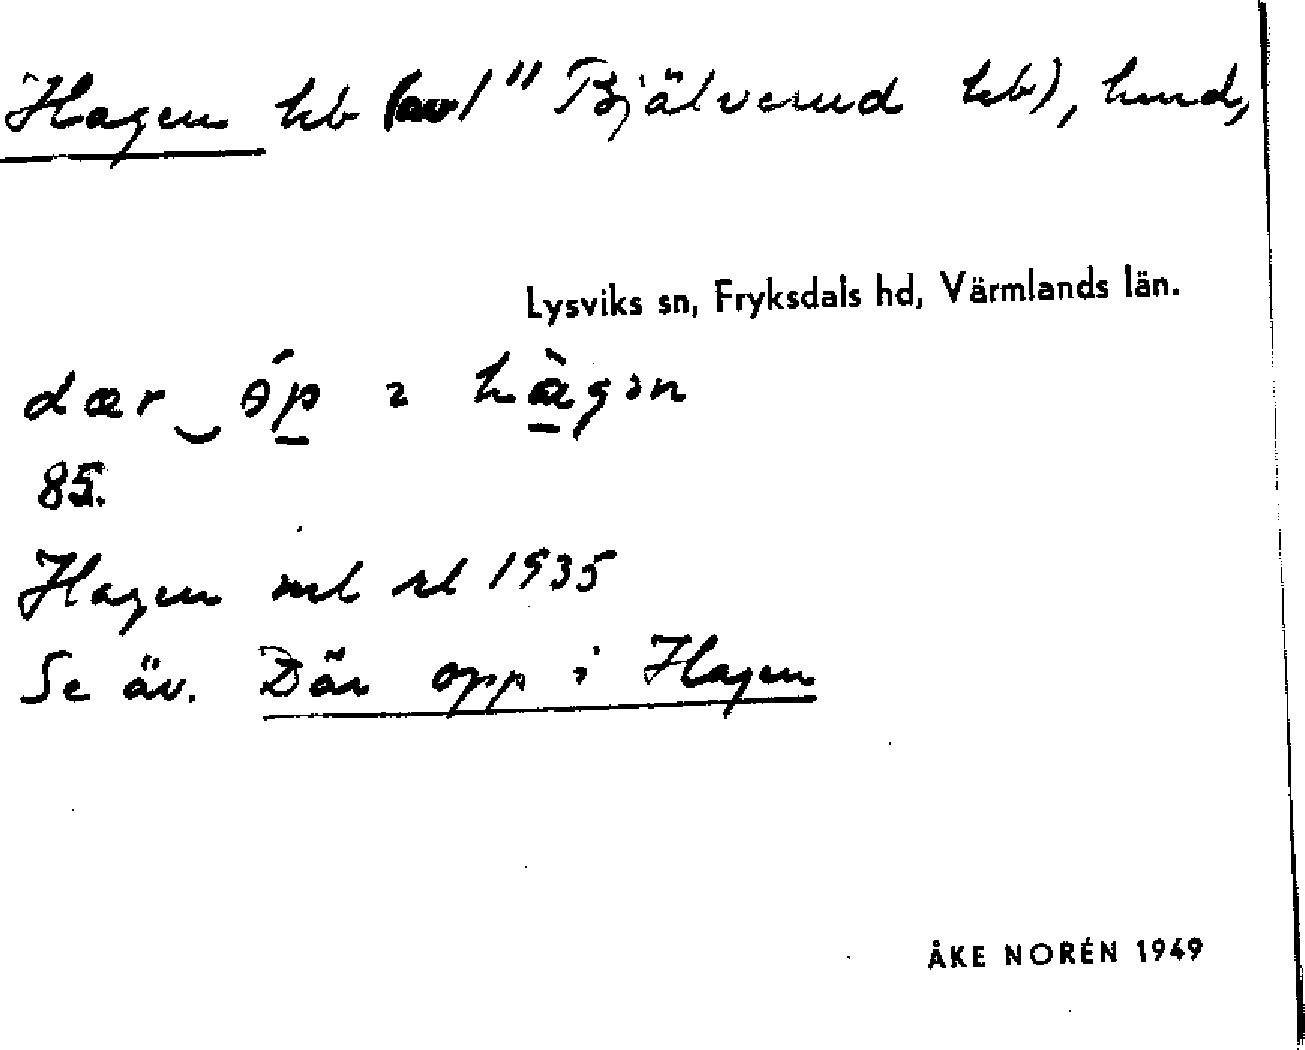 Hagen hb (av 1" Bjälverud hb), hmd,
Lysviks sn, Fryksdals hd, Värmlands län.
dær‿ɵ́p ɩ hàgən
85.
Hagen ml rl 1935
Se äv. Där opp i Hagen
ÅKE NORÉN 1949